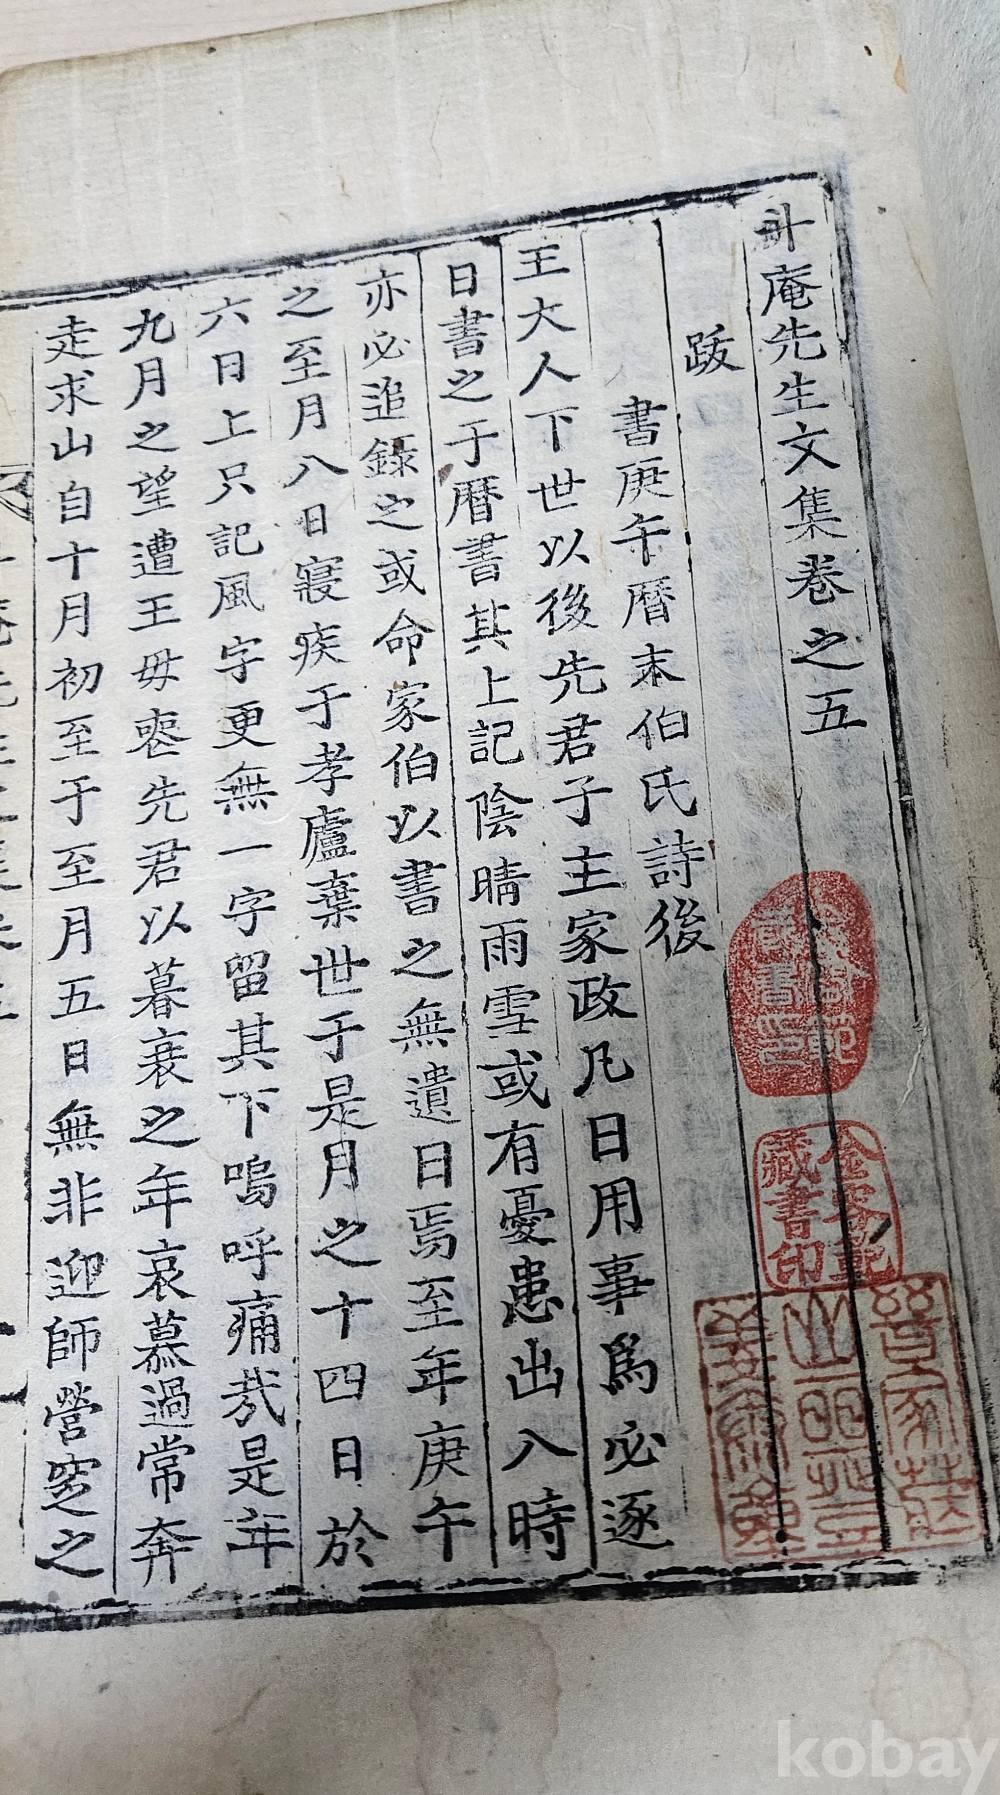 卟庵先生文集卷之五
跋
書庚午曆末伯氏詩後
王大人下世以後先君子主家政凡日用事爲必逐
日書之于曆書其上記陰晴雨雪或有憂患出入時
亦必追錄之或命家伯以書之無遺日焉至年庚午
之至月八日寢疾于孝廬棄世于是月之十四日於
六日上只記風字更無一字留其下嗚呼痛哉是年
九月之望遭王母喪先君以暮衰之年哀慕過常奔
走求山自十月初至于至月五日無非迎師營窆之
藏書印
kobay